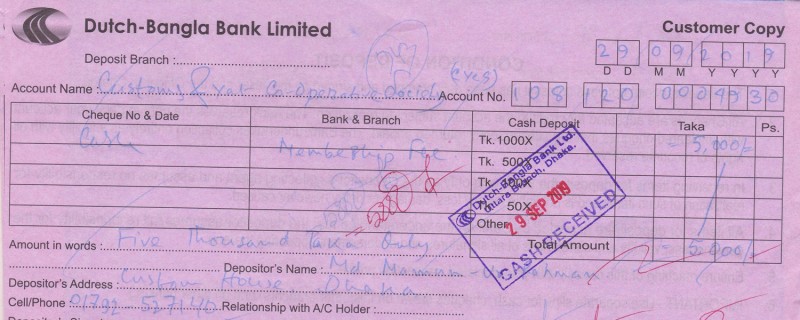 Dutch-Bangla Bank Limited
Customer Copy
Deposit Branch :
29 09 2019
D D M M Y Y Y Y
Account Name : Customs & Vat Co-operative Society Account No. 108 120 0004930
Cheque No & Date Bank & Branch Cash Deposit Taka Ps.
Cash Membership Fee Tk. 1000X = 5,000/-
Tk. 500X
Tk. 100X
Tk. 50X
Other
Dutch-Bangla Bank Ltd.
Uttara Branch, Dhaka.
29 SEP 2019
CASH RECEIVED
Total Amount = 5,000/-
Amount in words : Five Thousand Taka Only
Depositor's Name : Md.
Depositor's Address : Custom House, Dhaka
Cell/Phone : 01792 557140 Relationship with A/C Holder :